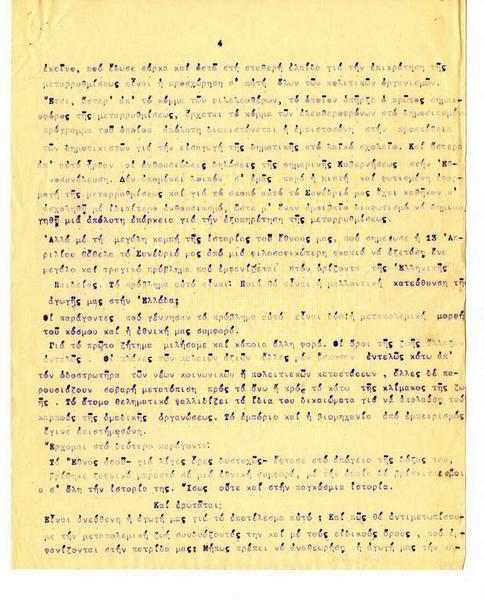 4
ἐκεῖνο, πού ἔδωσε σάρκα καί ὀστᾶ στή σταθερή ἐλπίδα γιά τήν ἐπικράτηση τῆς
μεταρρυθμίσεως εἶναι ἡ προσχώρηση σ' αὐτή ὅλων τῶν πολιτικῶν ὀργανισμῶν.
Ἔτσι, ὕστερ' ἀπ' τό κόμμα τῶν φιλελευθέρων, τό ὁποῖον ὑπῆρξε ὁ πρῶτος σημαι-
οφόρος τῆς μεταρρυθμίσεως, ἔρχεται τό κόμμα τῶν ἐλευθεροφρόνων στό δημοσιευμένο
πρόγραμμα τοῦ ὁποίου ἀπόλυτη διαπιστώνεται ἡ ἐμπιστοσύνη στήν προσπάθεια
τῶν δημοτικιστῶν γιά τήν εἰσαγωγή τῆς δημοτικῆς στό λαϊκό σχολεῖο. Καί ὕστερα
ἀπ' αὐτό ἦρθαν οἱ ἐνθουσιώδεις δηλώσεις τῆς σημερινῆς Κυβερνήσεως στήν Ἐθ-
νοσυνέλευση. Δέν ἀπομένει λοιπόν σ' ἐμᾶς παρά ἡ πιστή καί φωτισμένη ἐφαρ-
μογή τῆς μεταρρυθμίσεως καί γιά τό σκοπό αὐτό τό Συνέδριό μας ἔχει καθῆκον ν'
ἀσχοληθῇ μέ ἰδιαίτερο ἐνθουσιασμό, ὥστε μ' ἕναν ἀμοιβαῖο διαφωτισμό νά δημιου
γηθῇ μιά ἀπόλυτη ἐπάρκεια γιά τήν ἐξυπηρέτηση τῆς μεταρρυθμίσεως.
Ἀλλά μέ τή μεγάλη καμπή τῆς ἱστορίας τοῦ ἔθνους μας, πού σημείωσε ἡ 13 Ἀπ-
ριλίου θἄθελε τό Συνέδριό μας ἀπό μιά φιλοσοφικώτερη σκοπιά νά ἐξετάσῃ ἕνα
μεγάλο καί τραγικό πρόβλημα πού ἐμφανίζεται στόν ὁρίζοντα τῆς Ἑλληνικῆς
Παιδείας. Τό πρόβλημα αὐτό εἶναι: Ποιά θά εἶναι ἡ μελλοντική κατεύθυνση τῆς
ἀγωγῆς μας στήν Ἑλλάδα;
Οἱ παράγοντες πού γέννησαν τό πρόβλημα αὐτό εἶναι δύο: ἡ μεταπολεμική μορφή
τοῦ κόσμου καί ἡ ἐθνική μας συμφορά.
Γιά τό πρῶτο ζήτημα μιλήσαμε καί κάποια ἄλλη φορά. Οἱ ὅροι τῆς ζωῆς ἄλλαξαν
ἐντελῶς . Οἱ πλάκες τῶν παλαιῶν ἀξιῶν ἄλλες μέν ἔσπασαν ἐντελῶς κάτω ἀπ'
τόν ὁδοστρωτῆρα τῶν νέων κοινωνικῶν ἤ πολιτικῶν καταστάσεων , ἄλλες δέ πα-
ρουσιάζουν σοβαρή μετατόπιση πρός τά ἄνω ἤ πρός τά κάτω τῆς κλίμακος τῆς ζω
ῆς . Τό ἄτομο θεληματικά ψαλλιδίζει τά ἴδια του δικαιώματα γιά νά ἀπολαύσῃ τούς
καρπούς τῆς ὁμαδικῆς ὀργανώσεως. Τό ἐμπόριο καί ἡ βιομηχανία ἀπό ἐμπειρισμός
ἔγινε ἐπιστημοσύνη.
Ἔρχομαι στό δεύτερο παράγοντα:
Τό Ἔθνος ἀφοῦ- γιά λίγες ὧρες δυστυχῶς- ἔφτασε στό ἀπόγειο τῆς δόξας του,
βρέθηκε ξαφνικά μπροστά σέ μιά ἐθνική συμφορά, μέ τήν ὁποία δέ βρίσκεται ὅμοι
α σ' ὅλη τήν ἱστορία της. Ἴσως οὔτε καί στήν παγκόσμια ἱστορία.
Καί ἐρωτᾶται:
Εἶναι ἀνεύθυνη ἡ ἀγωγή μας γιά τό ἀποτέλεσμα αὐτό ; Καί πῶς θά ἀντιμετωπίσου-
με τήν μεταπολεμική ζωή συνδυάζοντάς την καί μέ τούς εἰδικούς ὅρους , πού ἐμ-
φανίζονται στήν πατρίδα μας; Μήπως πρέπει νά ἀναθεωρήσῃ ἡ ἀγωγή μας τήν κα-